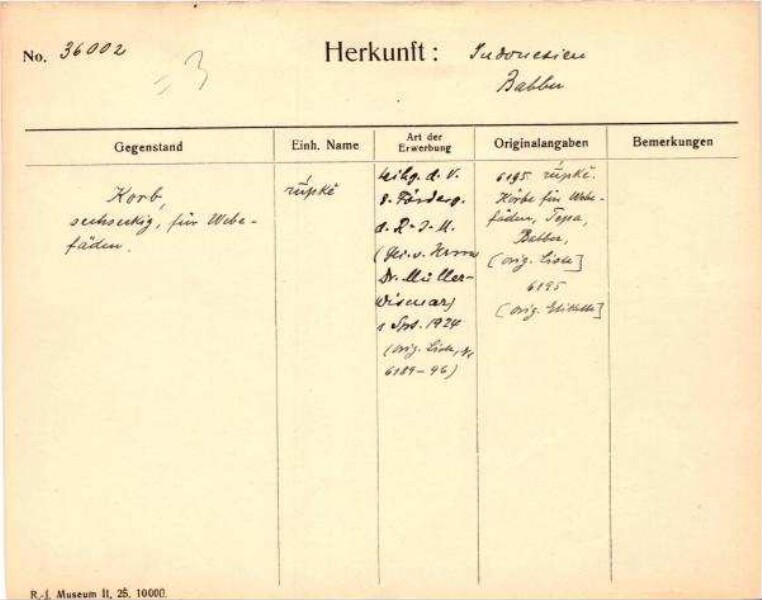 No. 36002
Herkunft: Indonesien
Babber
Gegenstand
Einh. Name
Art der Erwerbung
Originalangaben
Bemerkungen
Korb,
sechseckig, für Webe-
fäden.
rúpkĕ
Leihg. d. V.
z. Förderg.
d. R-J-M.
(Herrn
Dr. Müller-
Wismar)
1924
(orig. Liste, Nr
6189-96)
6195 rúpkĕ.
Körbe für Webe-
fäden, Tepa,
Babber,
(orig. Liste]
6195
(orig. Etikette]
R.-J. Museum II, 25. 10000.